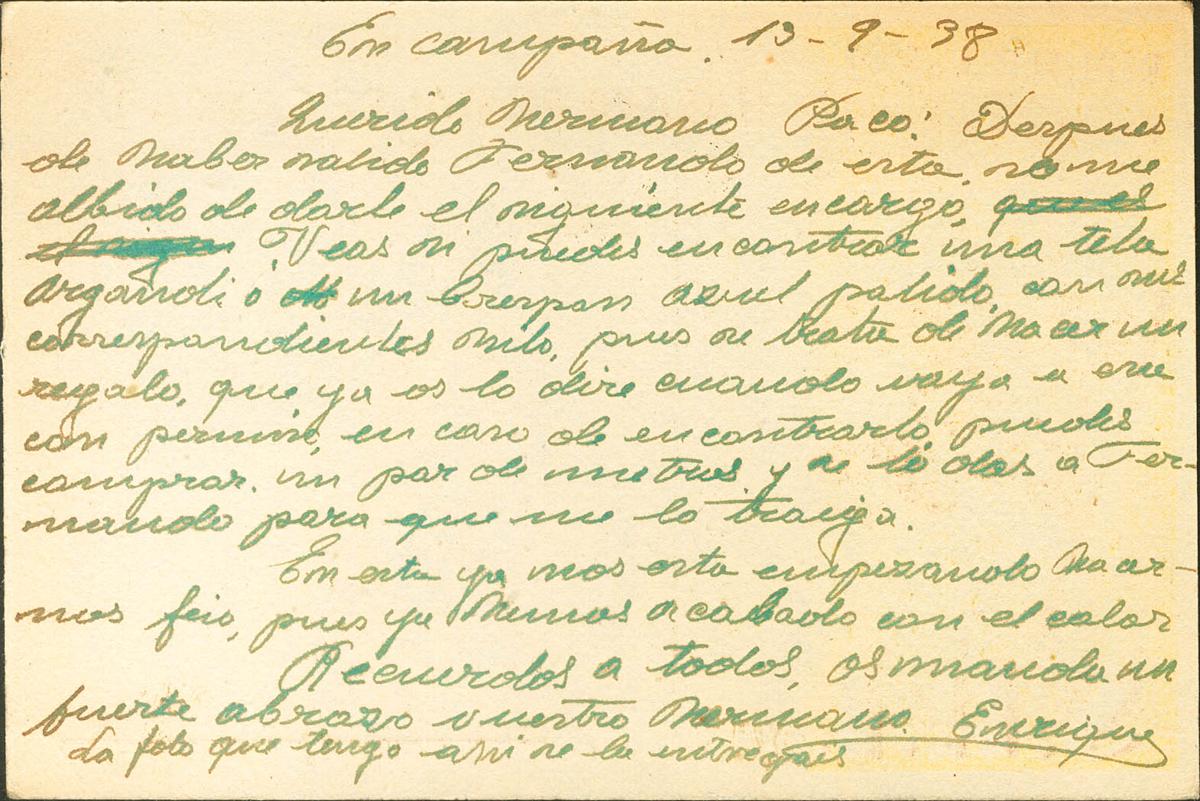 En campaña. 13-9-38
Querido hermano Paco: Despues
de haber salido Fernando de esta, no me
albido de darle el siguiente encargo,
Veas si puedes encontrar una tela
organdi ó un crespon azul palido, con sus
correspondientes hilo, pues se trata de hacer un
regalo, que ya os lo dire cuando vaya a esa
con permiso, en caso de encontrarlo, puedes
comprar. un par de metros, y se lo das a Fer-
nando para que me lo traiga.
En esta ya nos esta empezando hacer-
nos feio, pues ya hemos acabado con el calor
Recuerdos a todos, os manda un
fuerte abrazo vuestro hermano. Enrique
La foto que tengo ahi se la entregais